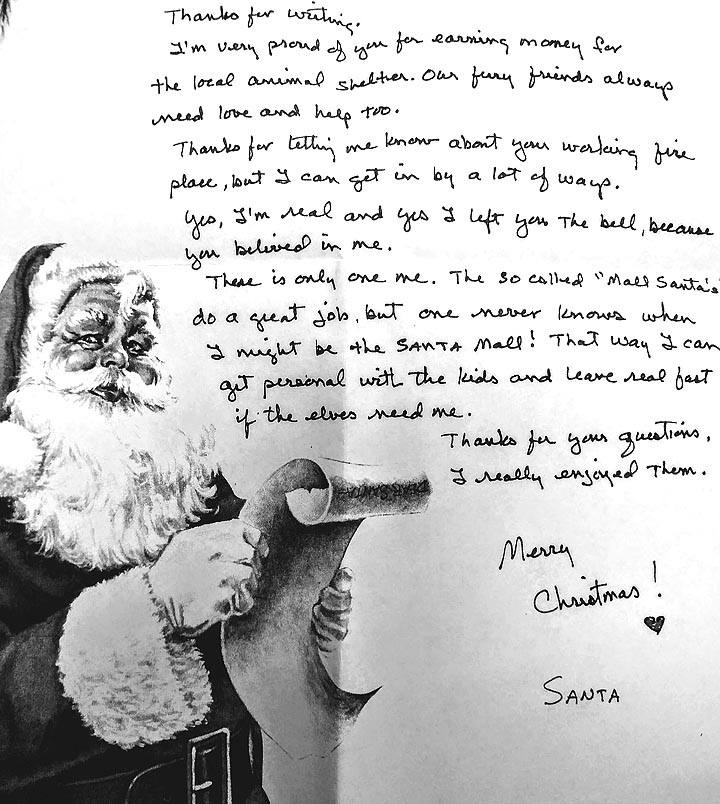 Thanks for writing.
I'm very proud of you for earning money for
the local animal shelter. Our fury friends always
need love and help too.
Thanks for letting me know about your working fire
place, but I can get in by a lot of ways.
Yes, I'm real and yes I left you the bell, because
you believed in me.
There is only one me. The so called "Mall Santa's"
do a great job, but one never knows when
I might be the SANTA Mall! That way I can
get personal with the kids and leave real fast
if the elves need me.
Thanks for your questions.
I really enjoyed them.
Merry
Christmas!
SANTA